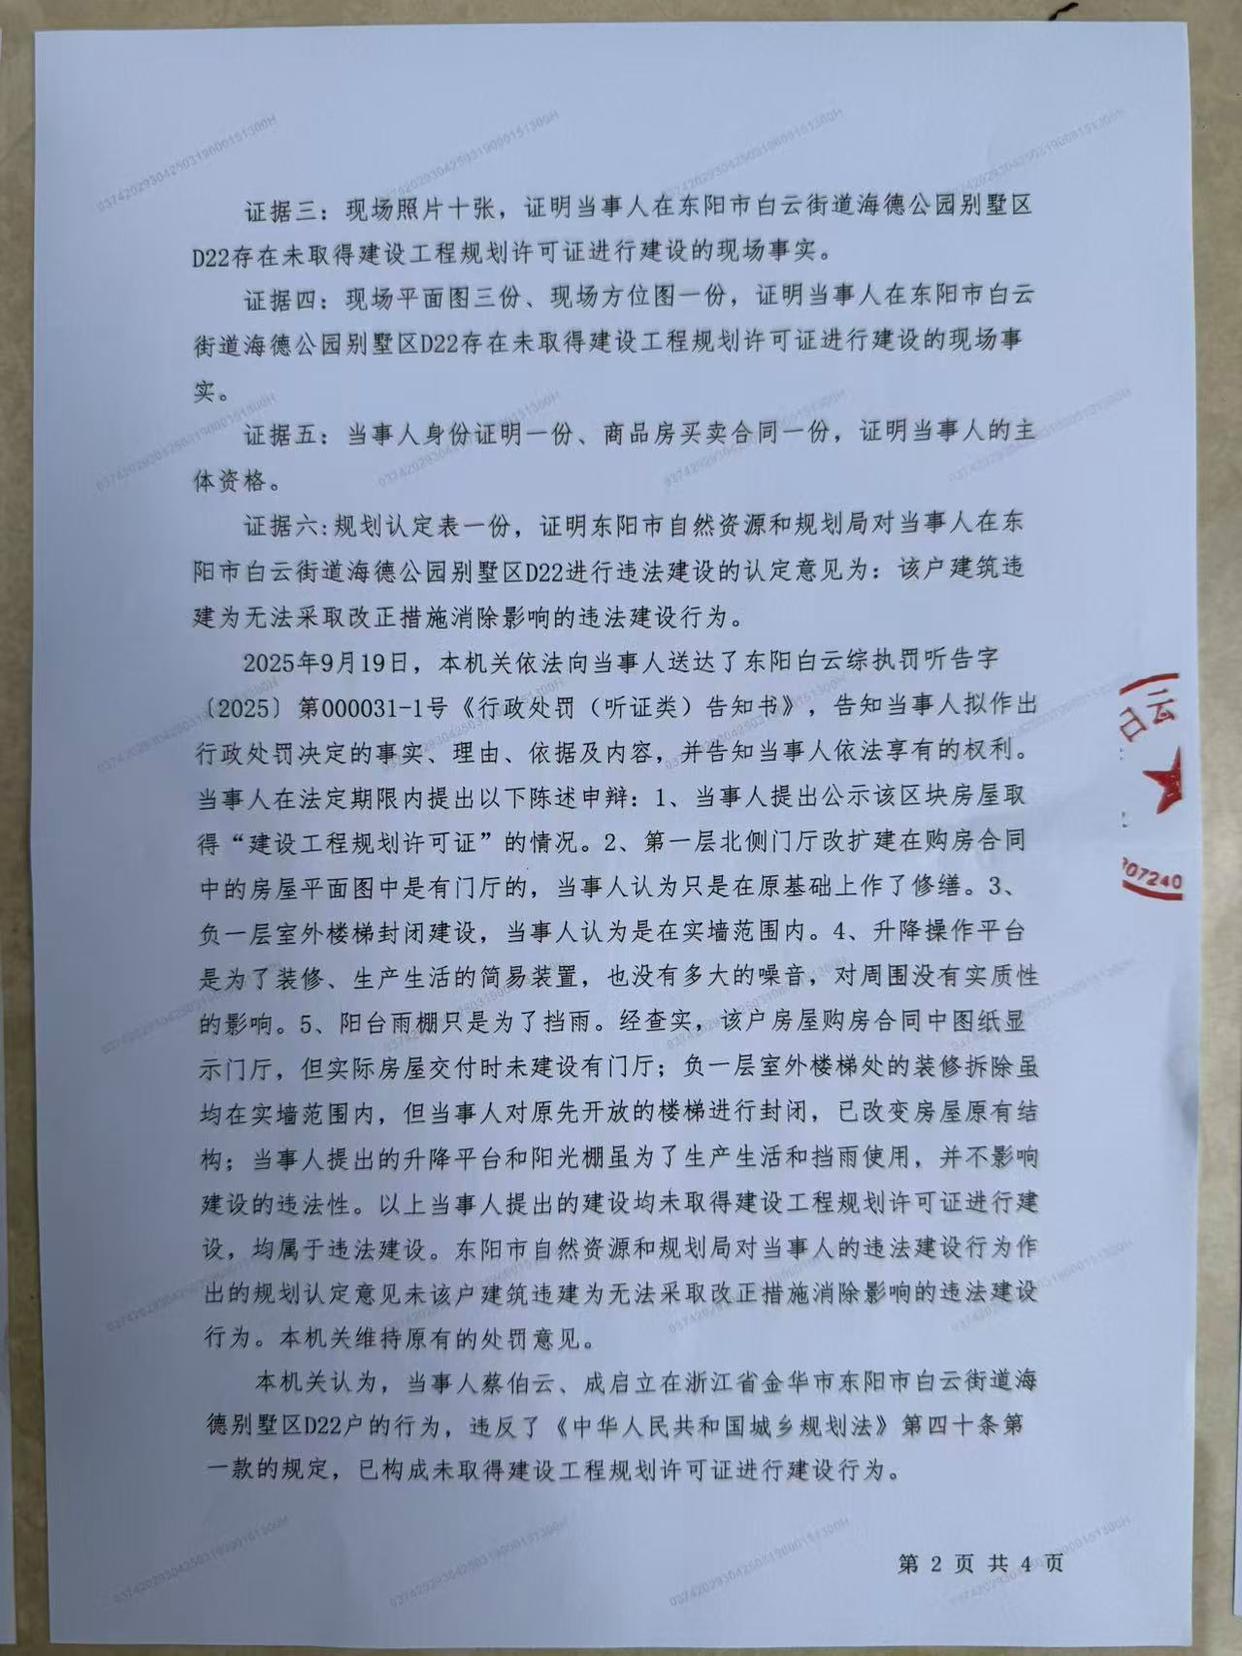 证据三：现场照片十张，证明当事人在东阳市白云街道海德公园别墅区
D22存在未取得建设工程规划许可证进行建设的现场事实。
证据四：现场平面图三份、现场方位图一份，证明当事人在东阳市白云
街道海德公园别墅区D22存在未取得建设工程规划许可证进行建设的现场事
实。
证据五：当事人身份证明一份、商品房买卖合同一份，证明当事人的主
体资格。
证据六:规划认定表一份，证明东阳市自然资源和规划局对当事人在东
阳市白云街道海德公园别墅区D22进行违法建设的认定意见为：该户建筑违
建为无法采取改正措施消除影响的违法建设行为。
2025年9月19日，本机关依法向当事人送达了东阳白云综执罚听告字
〔2025〕第000031-1号《行政处罚（听证类）告知书》，告知当事人拟作出
行政处罚决定的事实、理由、依据及内容，并告知当事人依法享有的权利。
当事人在法定期限内提出以下陈述申辩：1、当事人提出公示该区块房屋取
得“建设工程规划许可证”的情况。2、第一层北侧门厅改扩建在购房合同
中的房屋平面图中是有门厅的，当事人认为只是在原基础上作了修缮。3、
负一层室外楼梯封闭建设，当事人认为是在实墙范围内。4、升降操作平台
是为了装修、生产生活的简易装置，也没有多大的噪音，对周围没有实质性
的影响。5、阳台雨棚只是为了挡雨。经查实，该户房屋购房合同中图纸显
示门厅，但实际房屋交付时未建设有门厅；负一层室外楼梯处的装修拆除虽
均在实墙范围内，但当事人对原先开放的楼梯进行封闭，已改变房屋原有结
构；当事人提出的升降平台和阳光棚虽为了生产生活和挡雨使用，并不影响
建设的违法性。以上当事人提出的建设均未取得建设工程规划许可证进行建
设，均属于违法建设。东阳市自然资源和规划局对当事人的违法建设行为作
出的规划认定意见未该户建筑违建为无法采取改正措施消除影响的违法建设
行为。本机关维持原有的处罚意见。
本机关认为，当事人蔡伯云、成启立在浙江省金华市东阳市白云街道海
德别墅区D22户的行为，违反了《中华人民共和国城乡规划法》第四十条第
一款的规定，已构成未取得建设工程规划许可证进行建设行为。
第 2 页 共 4 页
云
07240